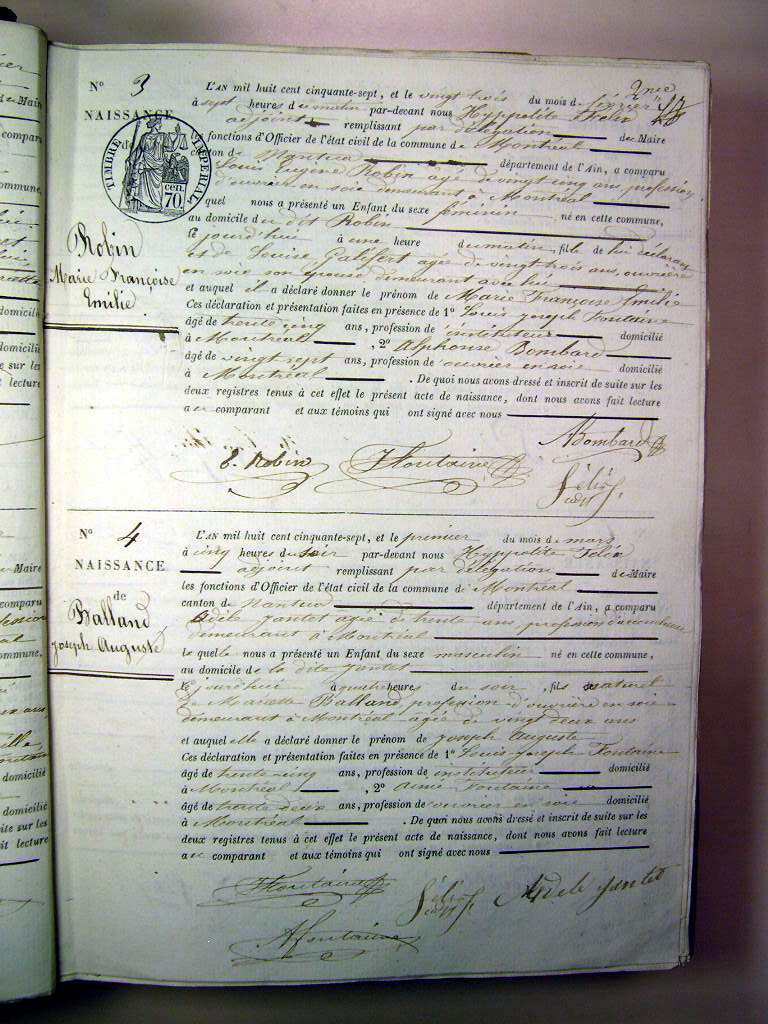 2me
48
N° 3
NAISSANCE
de
TIMBRE IMPÉRIAL
70 cen.
Robin
Marie Françoise
Emilie
L'AN mil huit cent cinquante-sept, et le vingt trois du mois de février
à sept heures du matin par-devant nous Hyppolite Félix
adjoint remplissant par délégation de Maire
les fonctions d'Officier de l'état civil de la commune de Montréal
canton de Nantua département de l'Ain, a comparu
Louis Eugène Robin âgé de vingt cinq ans, profession
d'ouvrier en soie demeurant à Montréal
lequel nous a présenté un Enfant du sexe féminin né en cette commune,
au domicile du dit Robin
le jourd'hui à une heure du matin, fille de lui déclarant
et de Louise agée de vingt trois ans, ouvrière
en soie son épouse demeurant avec lui
et auquel il a déclaré donner le prénom de Marie Françoise Emilie
Ces déclaration et présentation faites en présence de 1° Louis Joseph Fontaine
âgé de trente cinq ans, profession d'instituteur domicilié
à Montréal , 2° Alphonse Bombard
âgé de vingt sept ans, profession de ouvrier en soie domicilié
à Montréal . De quoi nous avons dressé et inscrit de suite sur les
deux registres tenus à cet effet le présent acte de naissance, dont nous avons fait lecture
au comparant et aux témoins qui ont signé avec nous
ABombard
E. Robin Fontaine
Félix
adjt
N° 4
NAISSANCE
de
Balland
Joseph Auguste
L'AN mil huit cent cinquante-sept, et le premier du mois de mars
à cinq heures du soir par-devant nous Hyppolite Félix
adjoint remplissant par délégation de Maire
les fonctions d'Officier de l'état civil de la commune de Montréal
canton de Nantua département de l'Ain, a comparu
Adèle Jantet agée de trente ans, profession d'accoucheuse
demeurant à Montréal
la quelle nous a présenté un Enfant du sexe masculin né en cette commune,
au domicile de la dite Jantet
le jourd'hui à quatre heures du soir, fils naturel
de Mariette Balland profession d'ouvrière en soie
demeurant à Montréal agée de vingt deux ans
et auquel elle a déclaré donner le prénom de Joseph Auguste
Ces déclaration et présentation faites en présence de 1° Louis-Joseph Fontaine
âgé de trente-cinq ans, profession de instituteur domicilié
à Montréal , 2° Aimé Fontaine
âgé de trente deux ans, profession de ouvrier en soie domicilié
à Montréal . De quoi nous avons dressé et inscrit de suite sur les
deux registres tenus à cet effet le présent acte de naissance, dont nous avons fait lecture
au comparant et aux témoins qui ont signé avec nous
Fontaine Félix Adele Jantet
adjt
AFontaine